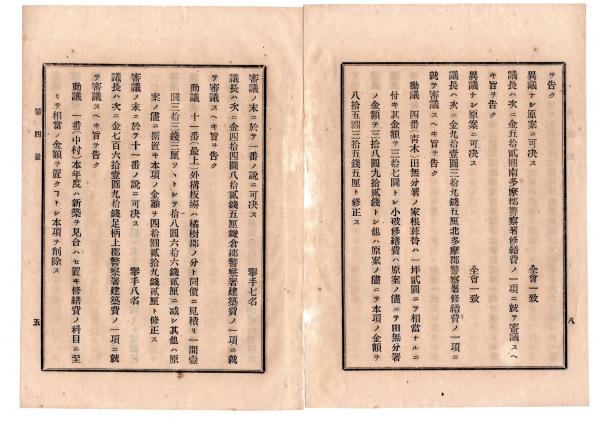 ヲ告ク
異議ナシ原案ニ可決ス　全會一致
議長ハ次ニ金五拾貳圓南多摩郡警察署修繕費ノ一項ニ就テ審議スヘ
キ旨ヲ告ク
異議ナシ原案ニ可決ス　全會一致
議長ハ次ニ金九拾壹圓三拾九錢五厘北多摩郡警察署修繕費ノ一項ニ
就テ審議スヘキ旨ヲ告ク
動議　四番(青木)田無分署ノ家根葺替ハ一坪貳圓ニテ相當ナルニ
付キ其金額ヲ三拾七圓トシ小破修繕費ハ原案ノ儘ニテ田無分署
ノ金額ヲ三拾八圓九拾貳錢トシ他ハ原案ノ儘ニテ本項ノ金額ヲ
八拾五圓三拾五錢五厘ト修正ス
八
審議ノ末ニ於テ一番ノ說ニ可決ス　擧手七名
議長ハ次ニ金四拾四圓八拾貳錢五厘鎌倉郡警察署建築費ノ一項ニ就
テ審議スヘキ旨ヲ告ク
動議　十一番(最上)外搆板塀ハ橘樹郡ノ分ト同價ニ見積リ一間壹
圓三拾三錢三厘ツヽトシテ拾八圓六拾六錢貳厘ニ減シ其他ハ原
案ノ儘ニ据置キ本項ノ金額ヲ四拾圓貳拾九錢貳厘ト修正ス
審議ノ末ニ於テ十一番ノ說ニ可決ス　擧手八名
議長ハ次ニ金七百六拾壹圓九拾錢足柄上郡警察署建築費ノ一項ニ就
テ審議スヘキ旨ヲ告ク
動議　一番(中村)本年度ハ新築ヲ見合ハセ置キ修繕費ノ科目ニ至
リテ相當ノ金額ヲ置クコトトシ本項ヲ削除ス
第四號
五